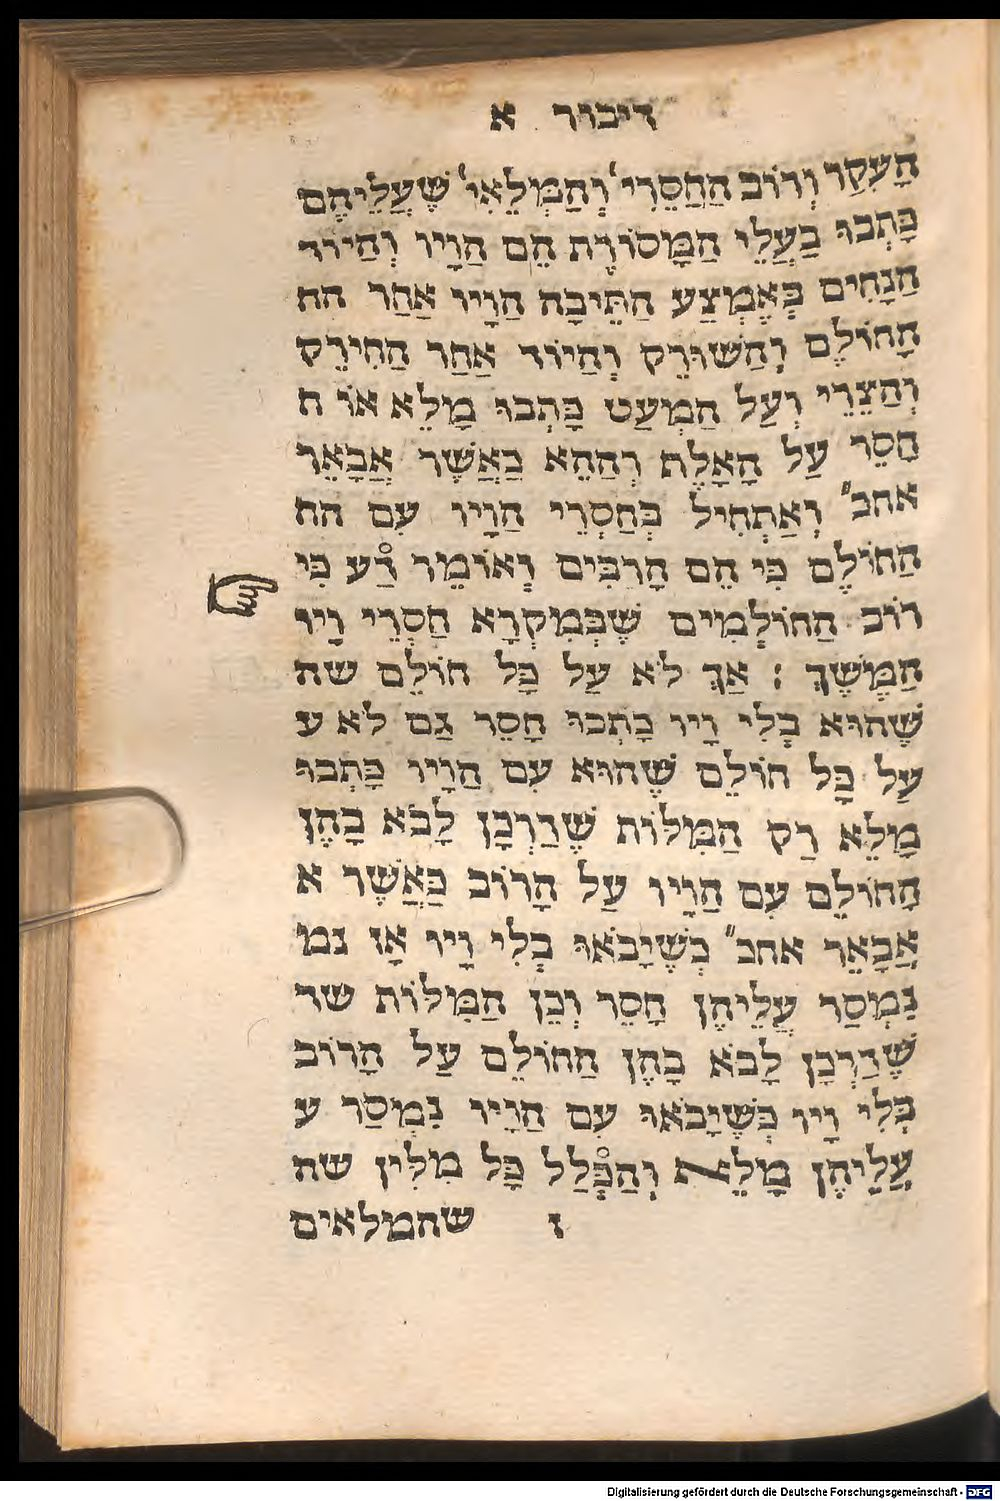 דיבור א
הָעִקַר וְרוֹב הַחֲסֵרִי' וְהַמְלֵאִי' שֶׁעֲלֵיהֶם
כָּתְבוּ בַעֲלֵי הַמָסוֹרֶת הֵם הַוָיו וְהַיוֹד
הַנָחִים בְּאֶמְצַע הַתֵּיבָה הַוָיו אַחַר הח
הַחוֹלֶם וְהַשׁוּרֵק וְהַיוֹד אַחַר הַחִירֵק
וְהַצֵרֵי וְעַל הַמְעַט כָּתְבוּ מָלֵא אוֹ ח
חָסֵר עַל הָאָלֶף וְהַהֵא כַאֲשֶׁר אֲבָאֵר
אחב" וְאַתְחִיל בְּחַסְרֵי הַוָיו עִם הח
הַחוֹלֶם כִּי הֵם הָרַבִּים וְאוֹמֵר דַע כִּי
רוֹב הַחוֹלָמִים שֶׁבְּמִקְרָא חַסְרֵי וָיו
הַמֶשֶׁךְ : אַךְ לֹא עַל כָּל חוֹלֵם שה
שֶׁהוּא בְּלִי וָיו כָּתְבוּ חָסֵר גַם לֹא ע
עַל כָּל חוֹלֵם שֶׁהוּא עִם הַוָיו כָּתְבוּ
מָלֵא רַק הַמִלּוֹת שֶׁדַרְכָּן לָבֹא בָהֶן
הַחוֹלֵם עִם הַוָיו עַל הָרוֹב כַּאֲשֶׁר א
אֲבָאֵר אחב" כְּשֶׁיָבֹאוּ בְּלִי וָיו אָז נמ
נִמְסַר עֲלֵיהֶן חָסֵר וְכֵן הַמִלּוֹת שד
שֶׁדַרְכָּן לָבֹא בָהֶן הַחוֹלֵם עַל הָרוֹב
בְּלִי וָיו כְּשֶׁיָבֹאוּ עִם הַוָיו נִמְסַר ע
עֲלֵיהֶן מָלֵא וְהַכְּלָל כָּל מִלִּין שה
ז שהמלאים
Digitalisierung gefördert durch die Deutsche Forschungsgemeinschaft - DFG